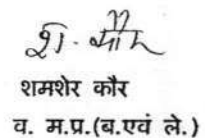 श. कौर
शमशेर कौर
व. म.प्र.(ब.एवं ले.)